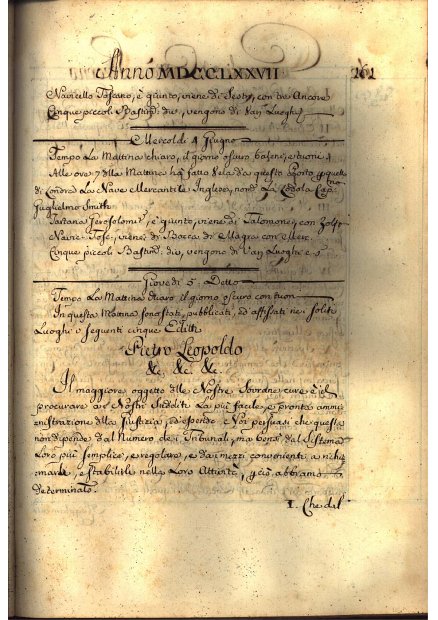 Annò MDCCLXXVII 261
Navicello Toscano, è quinto, viene di Sestri, con tre Ancore
Cinque piccoli Bastim: div: vengono di Varj Luoghi
Mercoldì 4 Giugno
Tempo La Mattina chiaro, il giorno oscuro baleni, e tuoni
Alle ore 7 della Mattina ha fatto vela da questo Porto p quello
di Londra La Nave Mercantile Inglese, nom: La Cap:no
Guglielmo Smith
Tartana Jerosolomi: è quinto, viene di Talamone, con Zolfo
Navic: Tosc: viene di Bocca di Magra con
Cinque piccoli Bastim: div: vengono di Varj Luoghi e s
Giovedì 5. Detto
Tempo La Mattina chiaro il giorno oscuro con tuoni
In questa Mattina sono stati pubblicati, ed affissati nei soliti
Luoghi i seguenti cinque Editti
Pietro Leopoldo
&c. &c. &c.
Il maggiore oggetto delle Nostre Sovrane cure è il
procurare ai Nostri Sudditi La più facile, e pronta ammi
nistrazione della Giustizia, ed essendo Noi persuasi che questa
non dipende dal Numero dei Tribunali, ma bensì dal Sistema
Loro più semplice, e regolare, e dai mezzi convenienti a richia
marli, e stabilirli nella Loro Attività, p ciò abbiamo
determinato.
I. Che dal